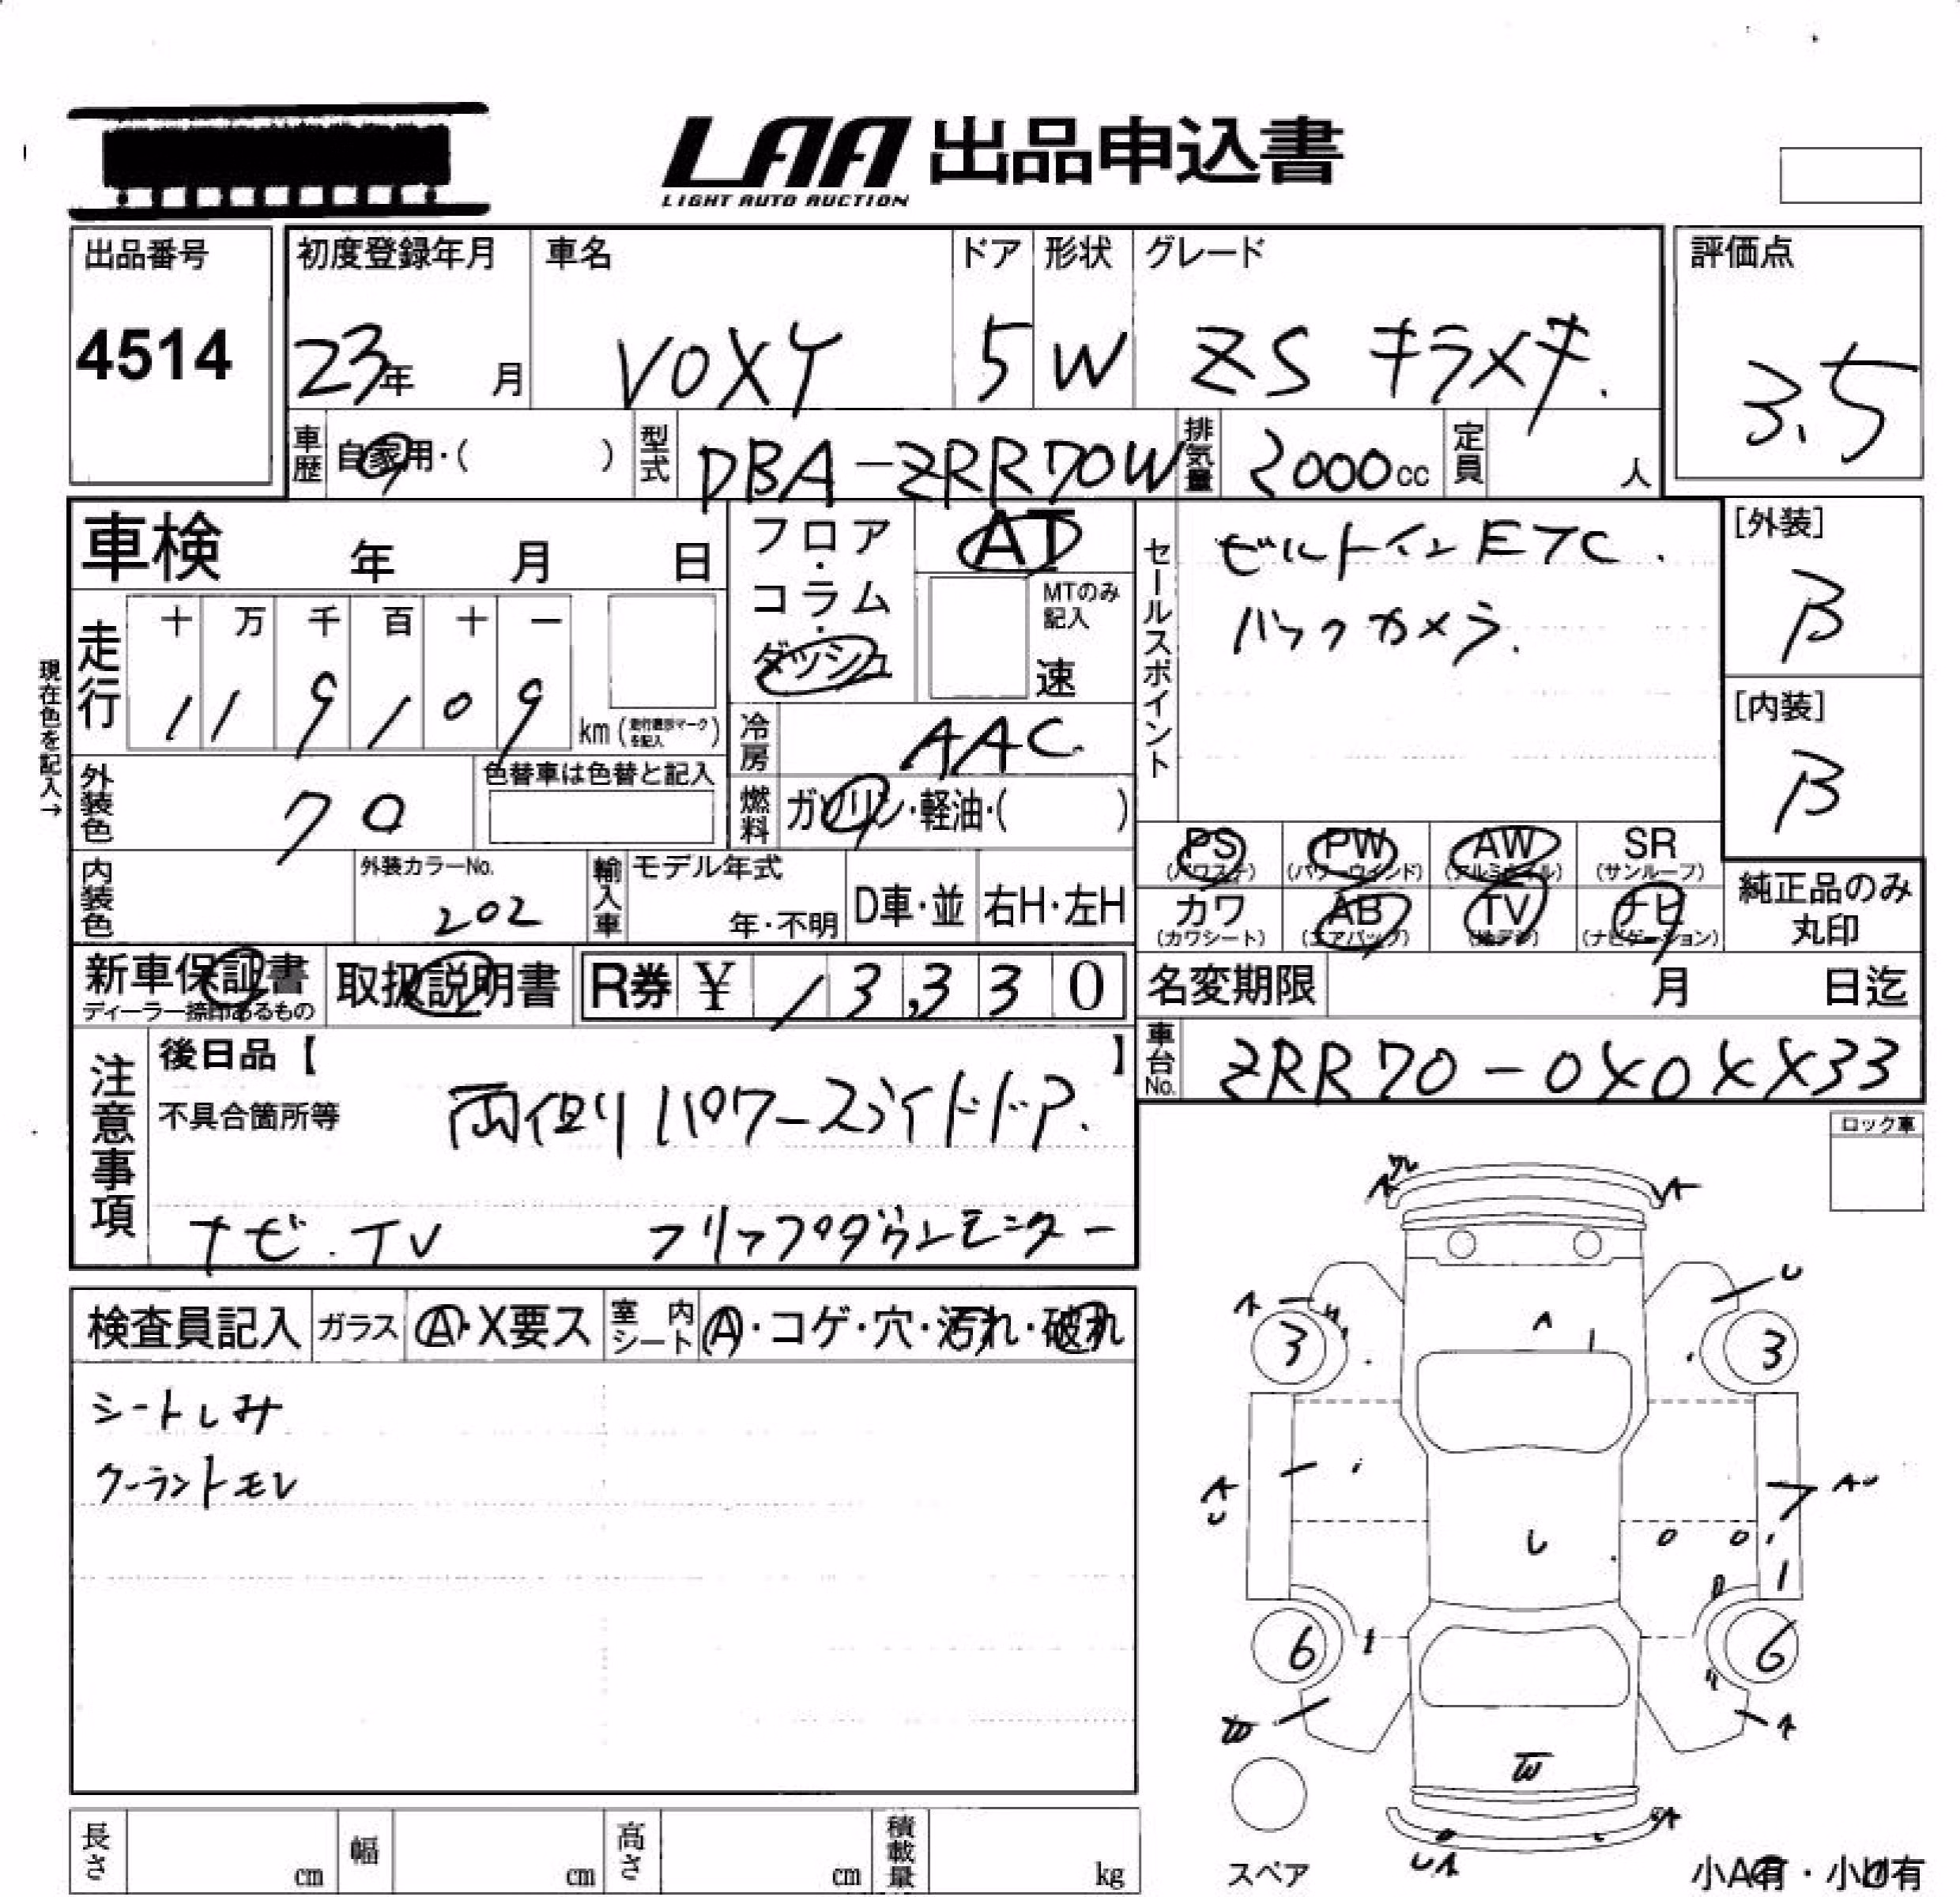 LAA 出品申込書
LIGHT AUTO AUCTION
出品番号
4514
初度登録年月
23年 月
車名
VOXY
ドア
5
形状
W
グレード
ZS キラメキ.
評価点
3.5
車歴 自家用・( )
型式 DBA-ZRR70W
排気量 2000cc
定員 人
車検 年 月 日
フロア・コラム・ダッシュ
AT
MTのみ記入
速
セールスポイント
ビルトインETC.
バックカメラ.
[外装]
B
[内装]
B
現在色を記入→
走行
十 万 千 百 十 一
1 1 9 1 0 9
km (走行退示マークを記入)
冷房 AAC
外装色 クロ
色替車は色替と記入
燃料 ガソリン・軽油・( )
内装色
外装カラーNo.
202
輸入車
モデル年式
年・不明
D車・並
右H・左H
PS
(パワステ)
PW
(パワーウインド)
AW
(アルミホイル)
SR
(サンルーフ)
カワ
(カワシート)
AB
(エアバッグ)
TV
(地デジ)
ナビ
(ナビゲーション)
純正品のみ
丸印
新車保証書
ディーラー捺印あるもの
取扱説明書
R券 ¥ 13,330
名変期限 月 日迄
車台No. ZRR70-0X0XX33
注意事項
後日品【 】
不具合箇所等
両側パワースライドドア.
ナビ.TV フリップダウンモニター
ロック車
検査員記入
ガラス A・X要ス
室内シート A・コゲ・穴・汚れ・破れ
シートしみ
クーラントモレ
A A
A U
3 3
A
1
A U
A U
U
1
6 6
A
W
U A
A
スペア
小A有・小U有
長さ cm
幅 cm
高さ cm
積載量 kg